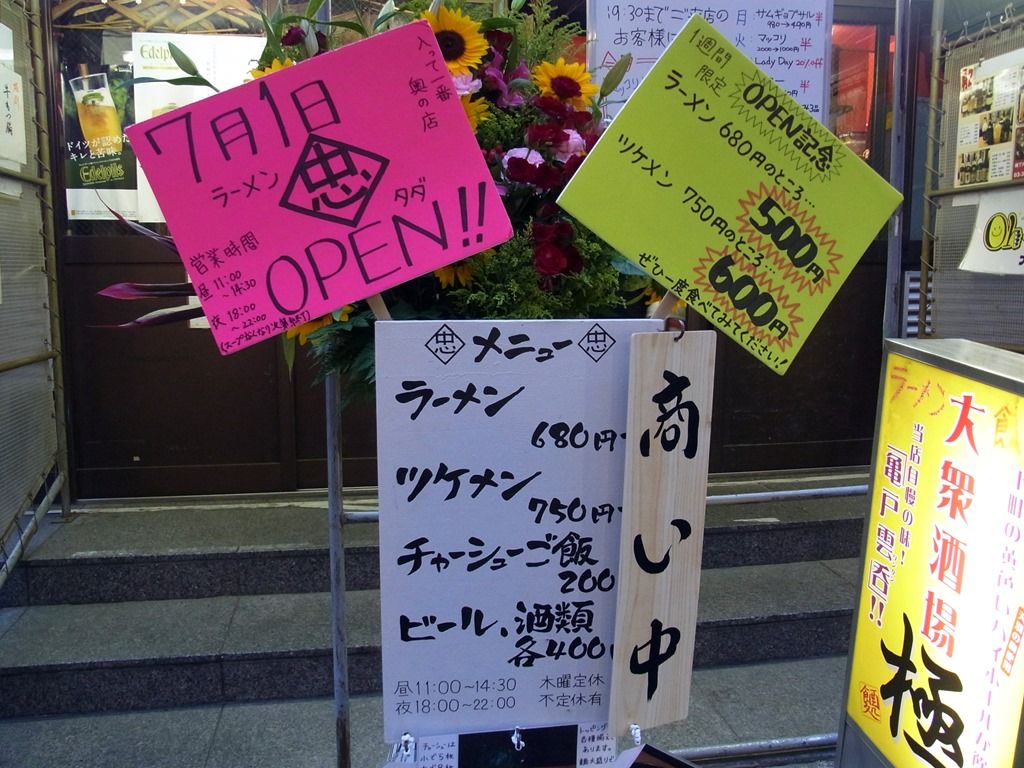 入って一番
奥の店
7月1日
ラーメン
忠
タダ
OPEN!!
営業時間
昼11:00
〜14:30
夜18:00
〜22:00
1週間
限定
OPEN記念
ラーメン 680円のところ...
500円
ツケメン 750円のところ...
600円
ぜひ一度食べてみてください!
19:30までご来店の
お客様に
月 サムギョプサル 半
980→490円
火 マッコリ 半
2000→1000円
Lady Day 20%off
Edelpils
ドイツが認めた
キレと苦味。
Edelpils
忠 メニュー 忠
ラーメン
680円
ツケメン
750円
チャーシューご飯
200
ビール、酒類
各400
昼11:00〜14:30 木曜定休
夜18:00〜22:00 不定休有
商い中
チャーシューは
小で5枚
トッピング
各種揃え
あります。
ラーメン
大衆酒場
極
当店自慢の味!
亀戸雲呑!!